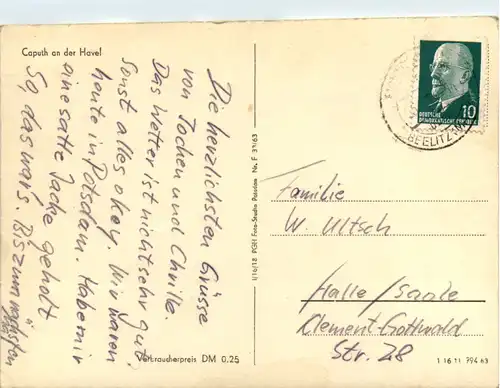 Caputh an der Havel
Die herzlichsten Grüsse
von Jochen und Chrille.
Das Wetter ist nicht sehr gut
sonst alles okay. Wir waren
heute in Potsdam. Habe mir
eine satte Jacke geholt
So, das war's. Bis zum nächsten
Verbraucherpreis DM 0,25
I/16/18 PGH Foto-Studio Potsdam Nr. F 39/63
10
DEUTSCHE
DEMOKRATISCHE REPUBLIK
BEELITZ
Familie
W. Ultsch
Halle/Saale
Clement-Gottwald
Str. 28
1 16 11 794 63